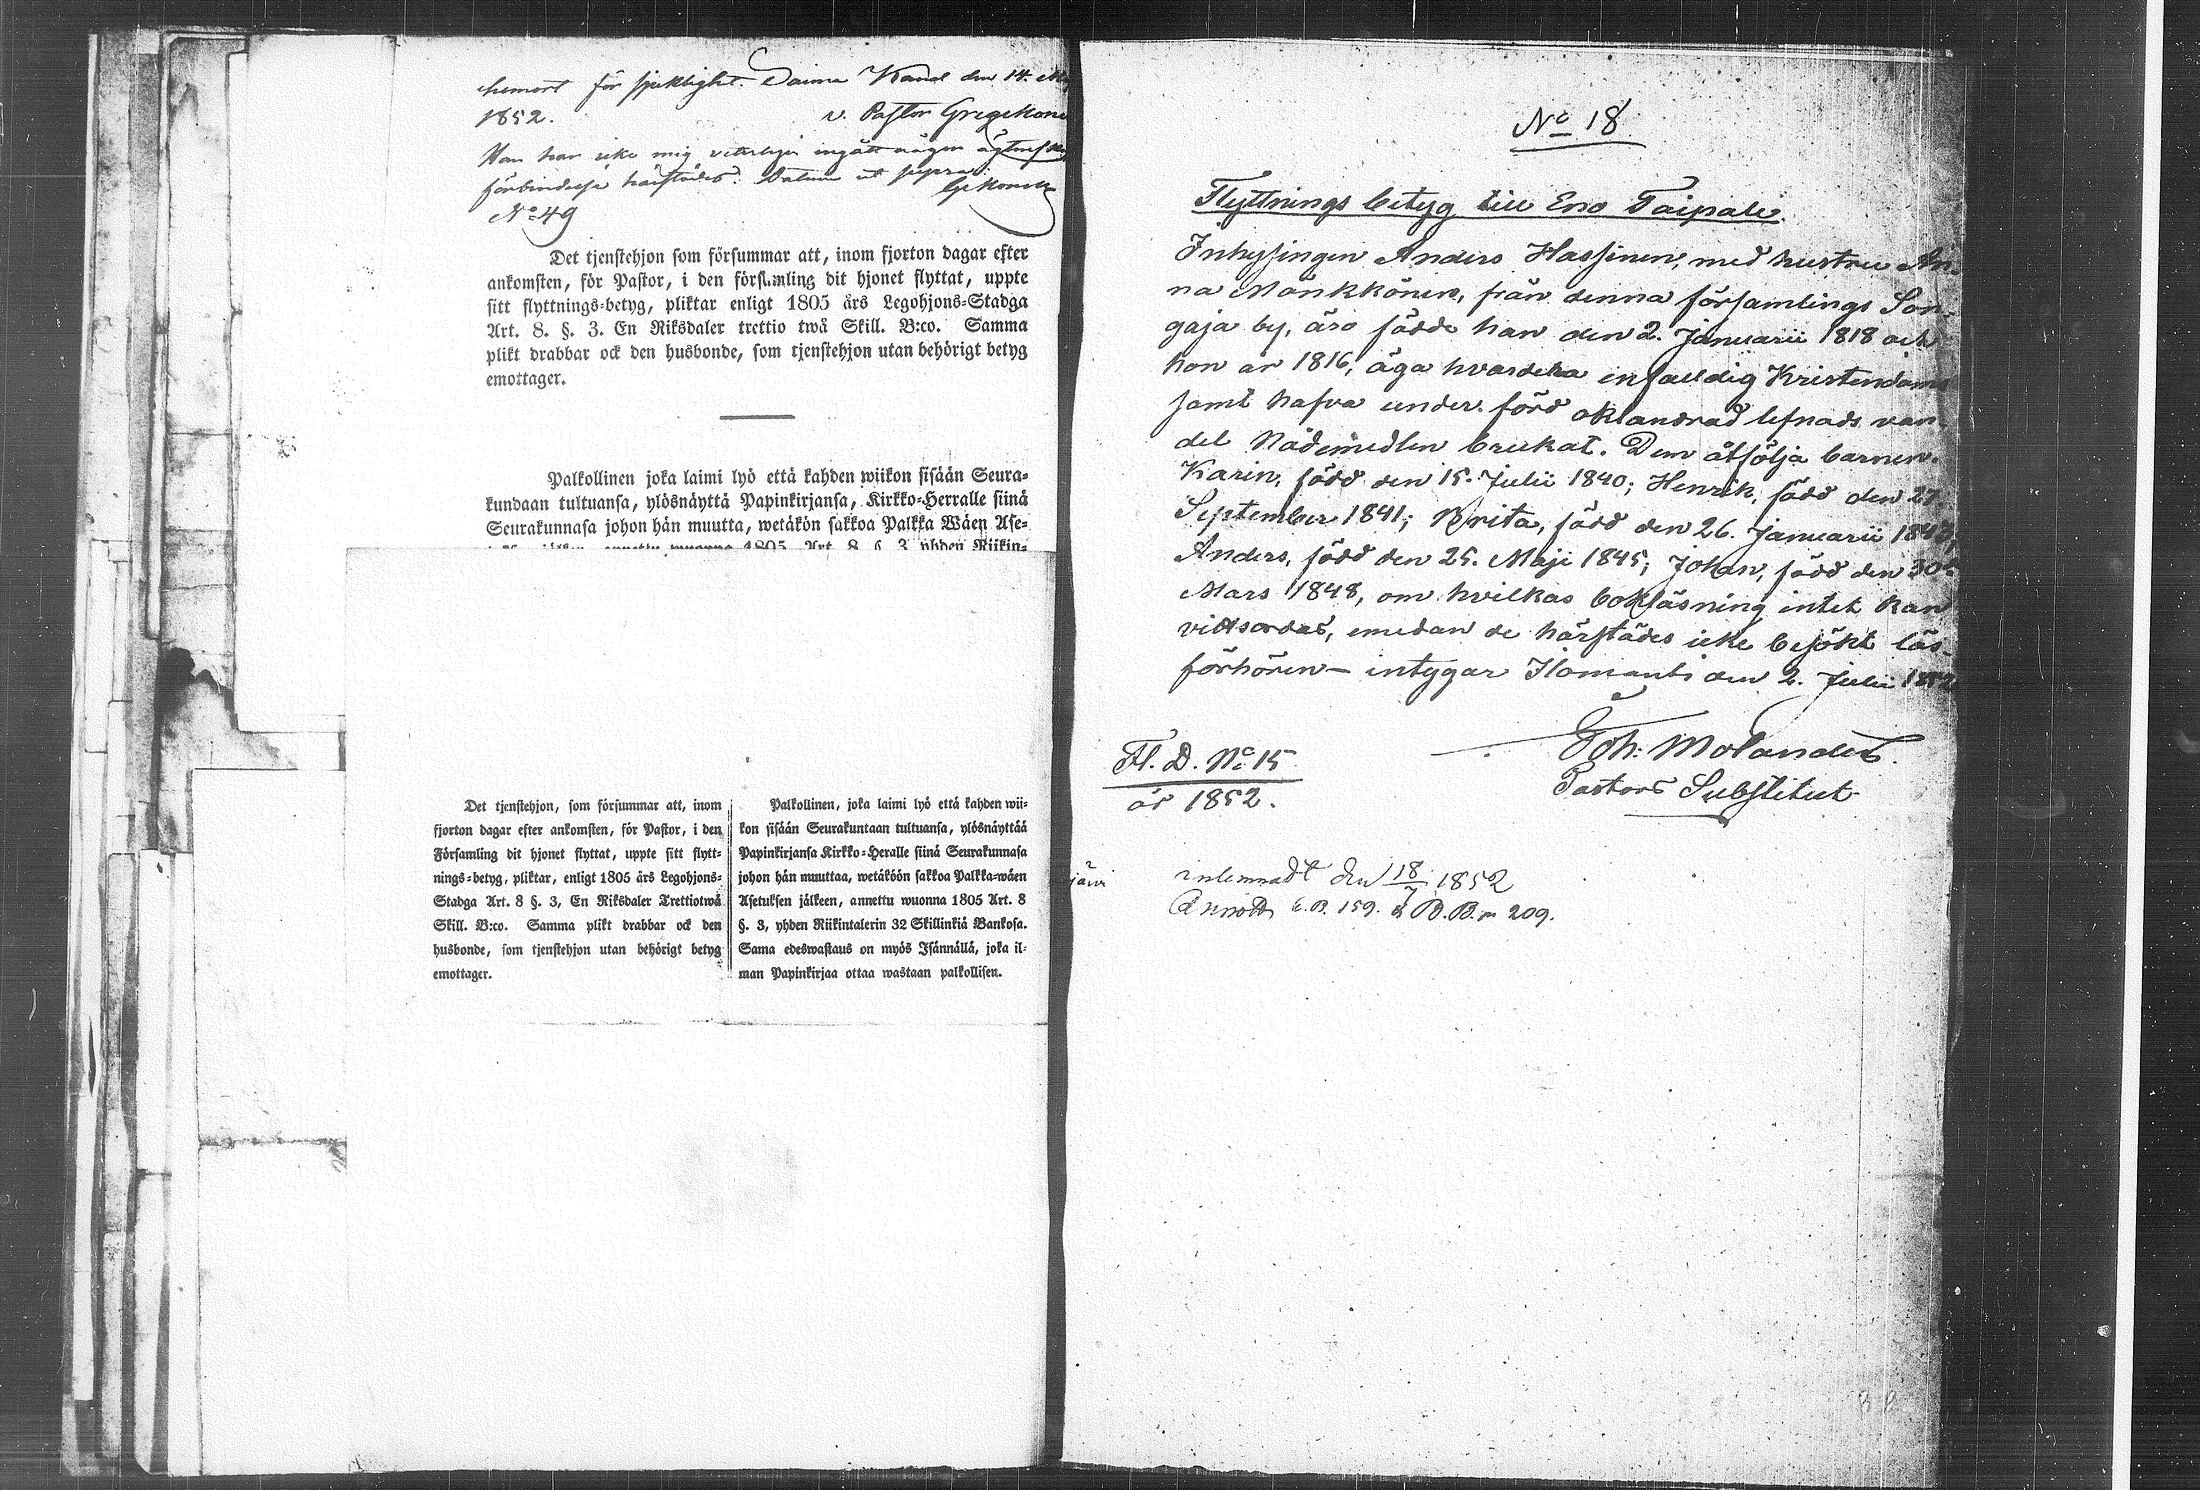 hemort för sjuklighet. Saima Kanal den 14. Maj
1852.
v. Pastor
Han har icke mig veterligen ingått någon ägtenskaps
förbindelse härstädes. Datum ut supra.
No 49
Det tjenstehjon som försummar att, inom fjorton dagar efter
ankomsten, för Pastor, i den församling dit hjonet flyttat, uppte
sitt flyttnings-betyg, pliktar enligt 1805 års Legohjons-Stadga
Art. 8. §. 3. En Riksdaler trettio twå Skill. B:co. Samma
plikt drabbar ock den husbonde, som tjenstehjon utan behörigt betyg
emottager.
Palkollinen joka laimi lyö että kahden wiikon sisään Seura-
kundaan tultuansa, ylösnäyttä Papinkirjansa, Kirkko-Herralle siinä
Seurakunnasa johon hän muutta, wetäkön sakkoa Palkka Wäen Ase-
annettu wuonna 1805 Art. 8 §. 3 yhden Riikin-
Det tjenstehjon, som försummar att, inom
fjorton dagar efter ankomsten, för Pastor, i den
Församling dit hjonet flyttat, uppte sitt flytt-
nings-betyg, pliktar, enligt 1805 års Legohjons-
Stadga Art. 8 §. 3, En Riksdaler Trettiotwå
Skill. B:co. Samma plikt drabbar ock den
husbonde, som tjenstehjon utan behörigt betyg
emottager.
Palkollinen, joka laimi lyö että kahden wii-
kon sisään Seurakuntaan tultuansa, ylösnäyttää
Papinkirjansa Kirkko-Heralle siinä Seurakunnasa
johon hän muuttaa, wetäköön sakkoa Palkka-wäen
Asetuksen jälkeen, annettu wuonna 1805 Art. 8
§. 3, yhden Riikintalerin 32 Skillinkiä Bankosa.
Sama edeswastaus on myös Isännällä, joka il-
man Papinkirjaa ottaa wastaan palkollisen.
No 18
Flyttnings betyg till Eno Taipale.
Inhysingen Anders Hassinen, med hustru An-
na Mönkkönen, från denna församlings Son-
gaja by, äro födde han den 2. Januarii 1818 och
hon år 1816, äga hvardera enfaldig Kristendoms
samt hafva under förd oklandrad lefnads van-
del Nådemedlen brukat. Dem åtfölja barnen.
Karin, född den 15. Julii 1840; Henrik, född den 27.
September 1841; Brita, född den 26. Januarii 1843,
Anders, född den 25. Maji 1845; Johan, född den 30
Mars 1848, om hvilkas bokläsning intet kan
vittsordas, emedan de härstädes icke besökt läs-
förhören – intygar Ilomants den 2. Julii 1852
Joh: Molander.
Pastors Substitut
Fl. D. No 15
år 1852.
järvi
inlemnadt den 18/7 1852
Annott C.B. 159. & B.B. 209.